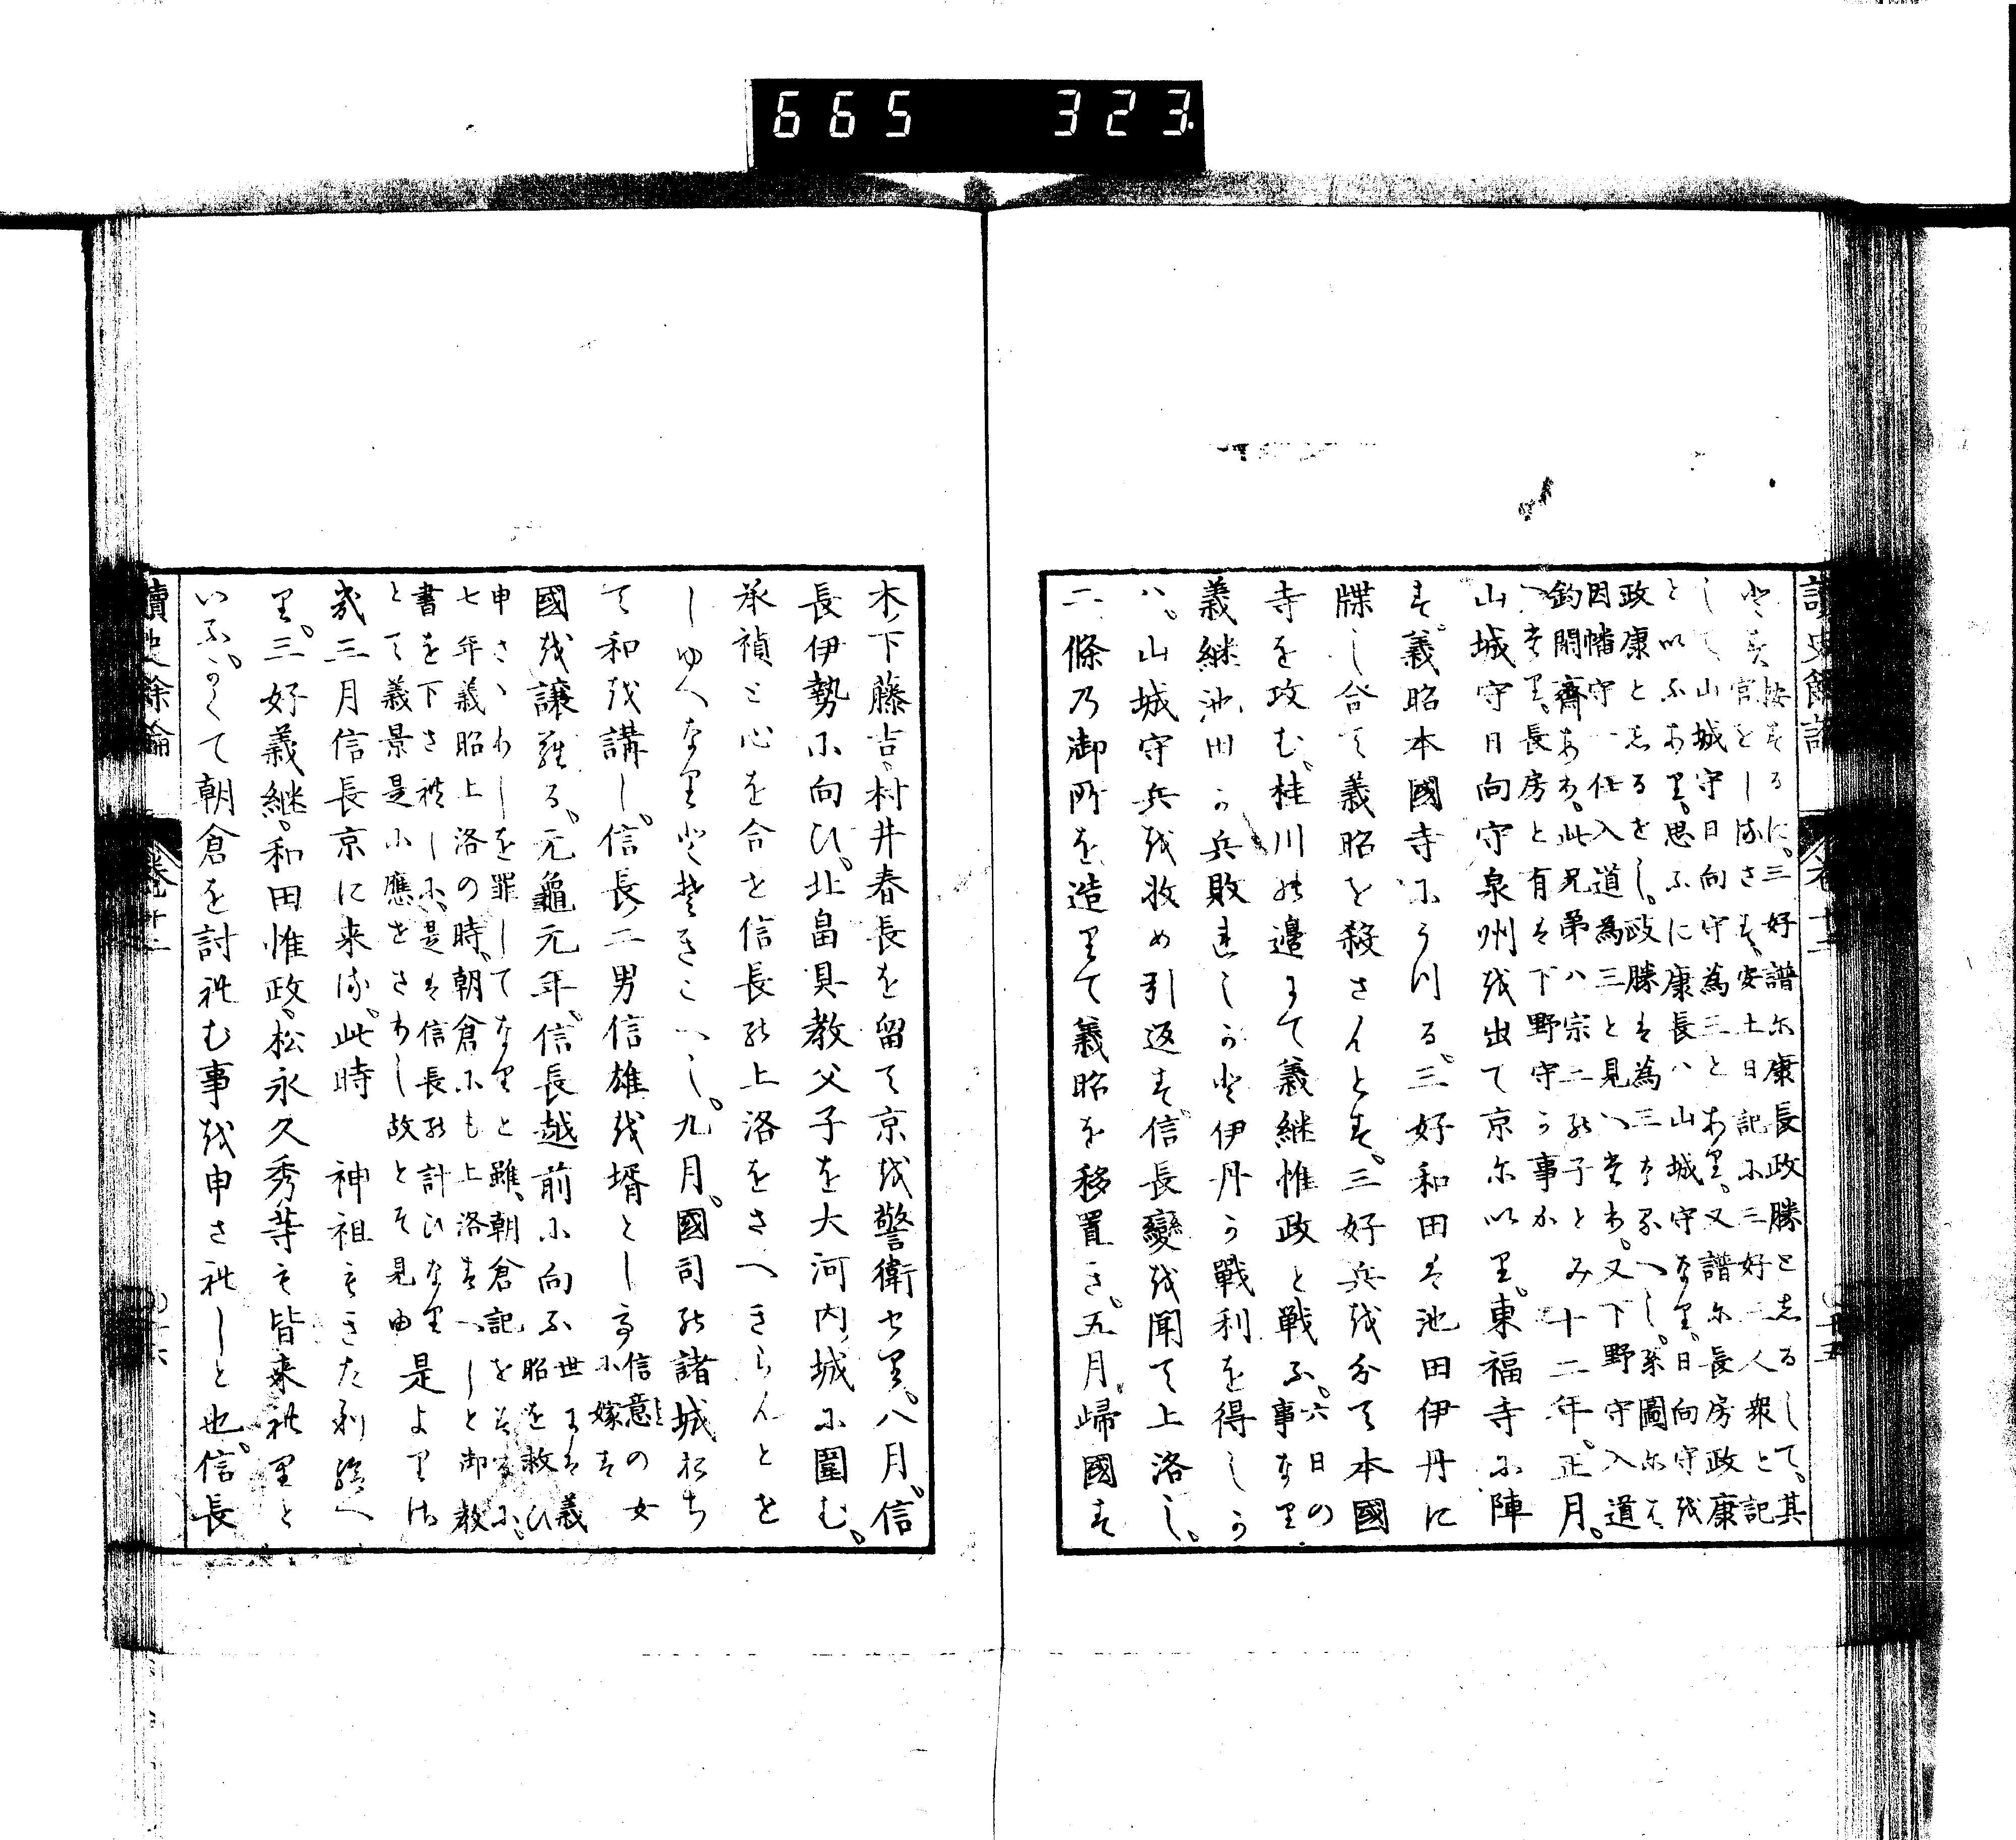 665 323
讀史餘論 卷十二
按するに三好譜に康長政勝としるして其
官をしるさす安土日記に三好二人衆と記
して山城守日向守為三とあり又譜に長房政康
と以ふあり思ふに康長ハ山城守なり日向守を
政康としるをし政勝は為三なるへし系圖には
因幡守一任入道為三と見へたり又下野守入道
釣閑齋あり此兄弟ハ宗三の子とみ
へたり長房と有は下野守か事か
十二年正月
山城守日向守泉州を出て京に以り東福寺に陣
す義昭本國寺にうつる三好和田は池田伊丹に
牒し合て義昭を殺さんとす三好兵を分て本國
寺を攻む桂川の邊にて義継惟政と戦ふ六日の
事なり
義継池田か兵敗せしかと伊丹か戰利を得しか
ハ山城守兵を收め引返す信長變を聞て上洛し
二條の御所を造りて義昭を移置き五月歸國す
木下藤吉村井春長を留て京を警衛せり八月信
長伊勢に向ひ北畠具教父子を大河内城に圍む
承禎と心を合せ信長の上洛をさへきらんとせ
しゆへなりときこへし九月國司の諸城おち
て和を講し信長二男信雄を壻とし
信意の女
に嫁す
國を讓らる元龜元年信長越前に向ふ
世には義
昭を救ひ
申さゝりしを罪してなりと雖朝倉記を見るに
七年義昭上洛の時朝倉にも上洛すへしと御教
書を下されしに是は信長の計ひなり
とて義景是に應せさりし故とそ見ゆ
是より
歳三月信長京に来る此時 神祖もきたり給へ
り三好義継和田惟政松永久秀等も皆来れりと
いふかくて朝倉を討れむ事を申されしと也信長
讀史餘論 卷十二